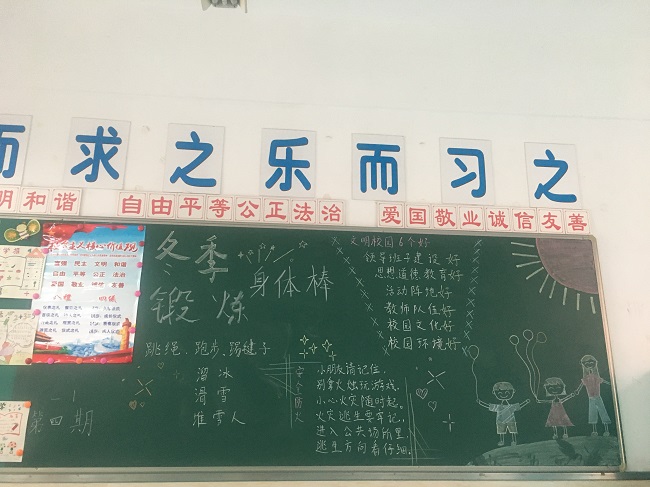 而求之乐而习之
明和谐 自由平等公正法治 爱国敬业诚信友善
社会主义核心价值观
富强 民主 文明 和谐
自由 平等 公正 法治
爱国 敬业 诚信 友善
八礼 四仪
冬季
锻炼
身体棒
跳绳、跑步、踢毽子
溜冰
滑雪
堆雪人
第四期
文明校园6个好
领导班子建设好
思想道德教育好
活动阵地好
教师队伍好
校园文化好
校园环境好
安全防火
小朋友请记住,
别拿火烛玩游戏。
小心火灾随时起。
火灾逃生要牢记,
进入公共场所里,
逃生方向看仔细。